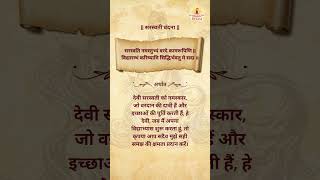 || सरस्वती वंदना ||
सरस्वति नमस्तुभ्यं वरदे कामरूपिणि ||
विद्यारम्भं करिष्यामि सिद्धिर्भवतु मे सदा ||
अर्थात
देवी सरस्वती को नमस्कार,
जो वरदान की दात्री हैं और
इच्छाओं की पूर्ति करती हैं, हे
देवी, जब मैं अपना
विद्याभ्यास शुरू करता हूं, तो
कृपया आप सदैव मुझे सही
समझ की क्षमता प्रदान करें।